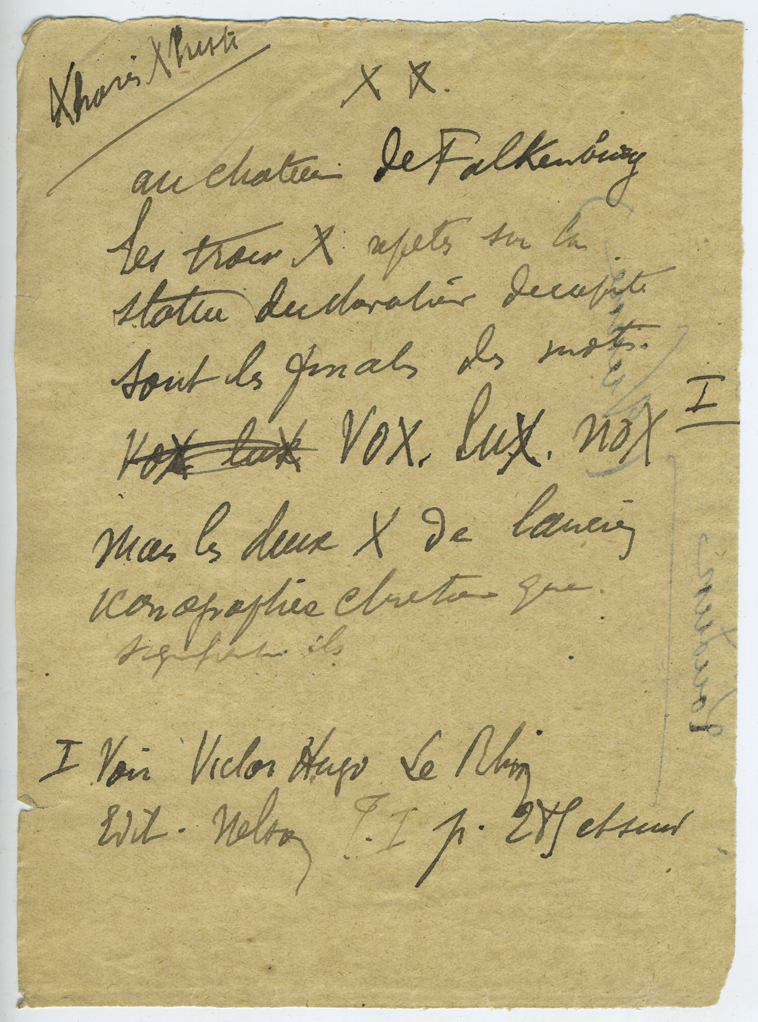 Xharis Xhristi
X X.
au chateau de Falkenburg
les trois X repetes sur la
statue du chevalier decapité
sont les finals des mots.
vox lux VOX. LUX. NOX I
mais les deux X de l'ancien
iconographie chretienne que
signifient ils
I Voir Victor Hugo Le Rhin
Edit. Nelson T. I p. 285 et suiv